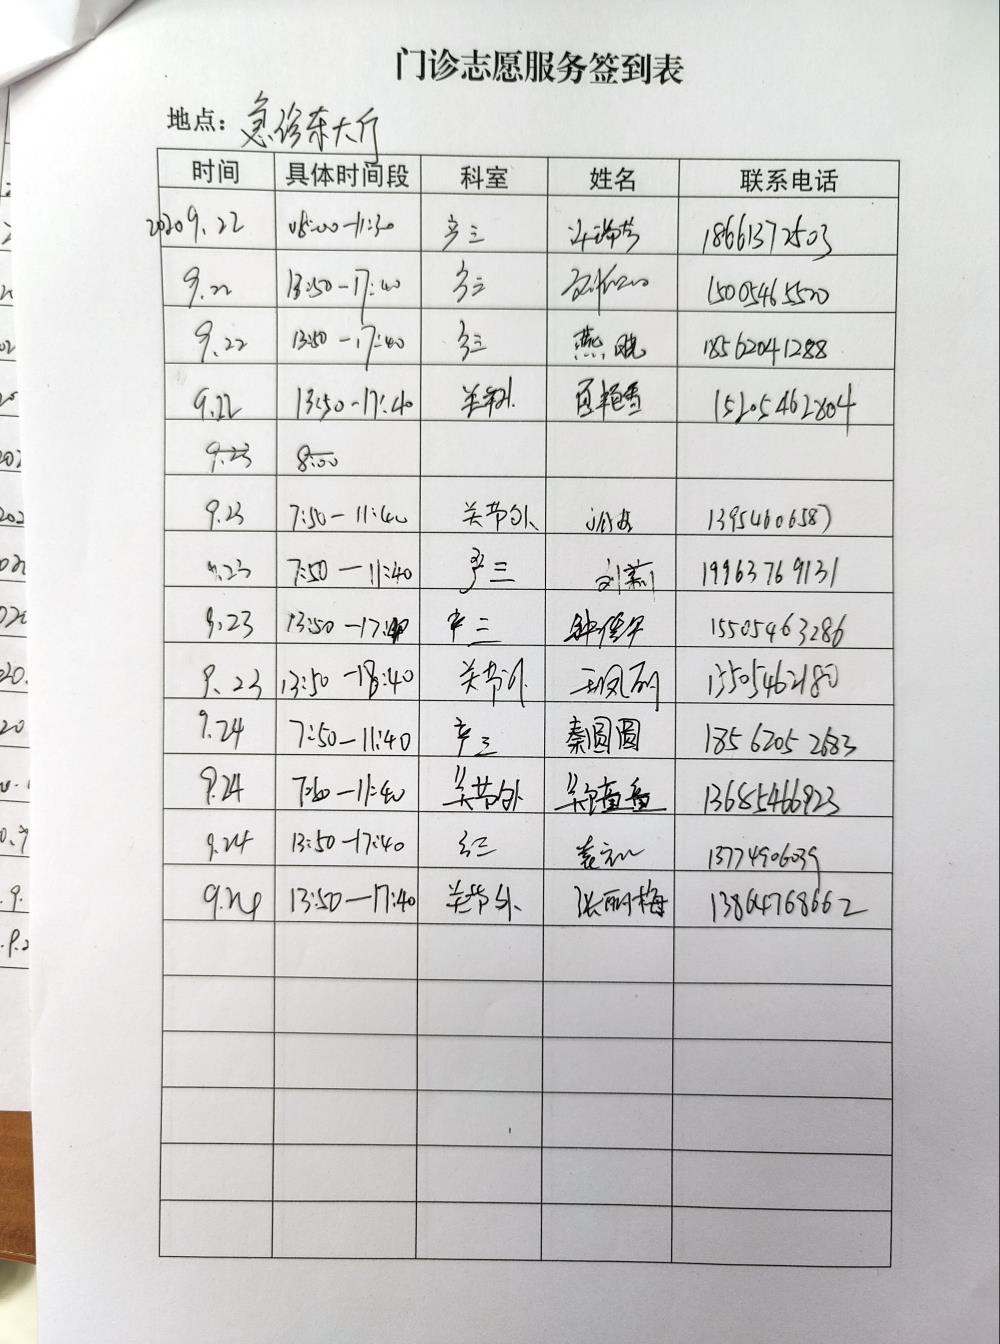 门诊志愿服务签到表
地点：急诊东大厅
时间 具体时间段 科室 姓名 联系电话
2020 9.22 08:00-11:30 产三 18661372503
9.22 13:50-17:40 产三 15005465520
9.22 13:50-17:40 产三 燕晓 18562041288
9.22 13:50-17:40 15205462804
9.23 8:00
9.23 7:50-11:40 关节外 13954606587
9.23 7:50-11:40 产三 刘莉 19963769131
9.23 13:50-17:40 产三 15505463286
9.23 13:50-18:40 关节外 13505462180
9.24 7:50-11:40 产三 秦圆圆 18562052683
9.24 7:50-11:40 关节外 13685466923
9.24 13:50-17:40 产三 13774906039
9.24 13:50-17:40 关节外 张丽梅 13864768662